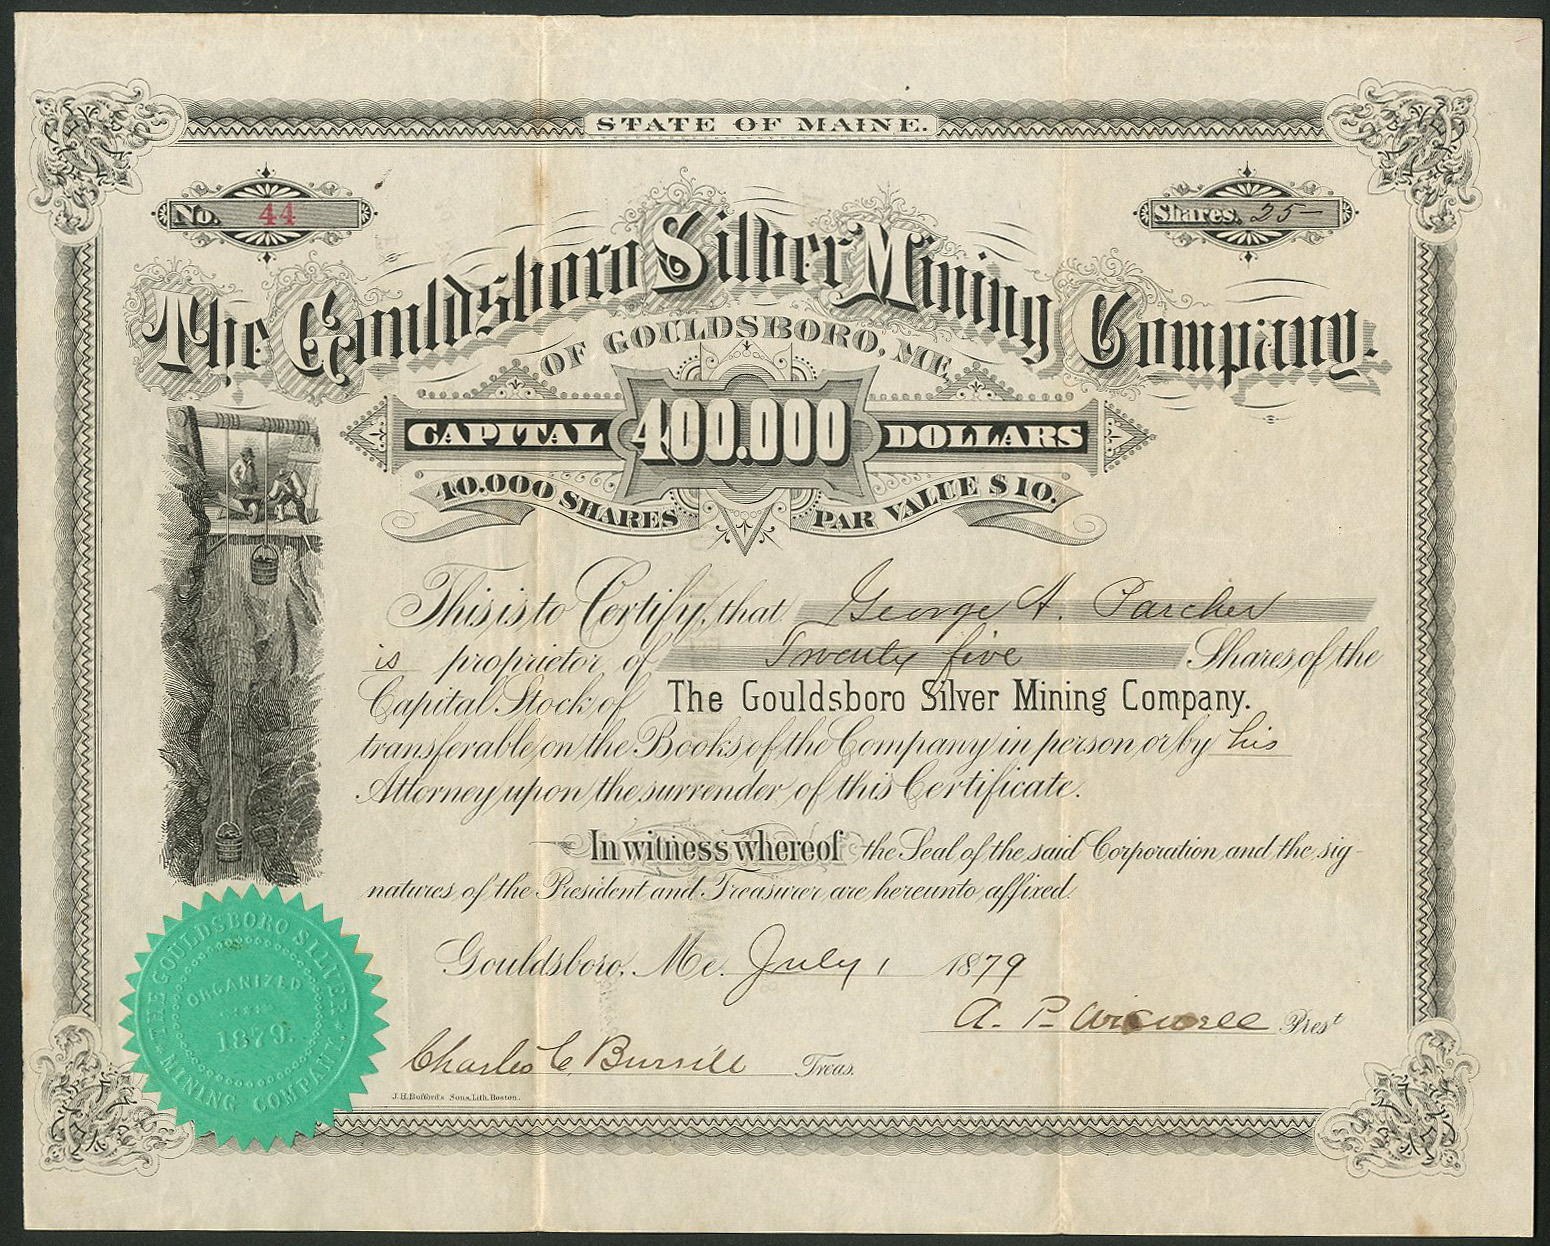 STATE OF MAINE.
No. 44
Shares, 25—
The Gouldsboro Silver Mining Company.
OF GOULDSBORO, ME,
CAPITAL 400.000 DOLLARS
40.000 SHARES PAR VALUE $10.
This is to Certify, that George A. Parcher
is proprietor of Twenty five Shares, of the
Capital Stock of The Gouldsboro Silver Mining Company.
transferable on the Books of the Company in person or by his
Attorney upon the surrender of this Certificate.
In witness whereof the Seal of the said Corporation and the sig-
natures of the President and Treasurer are hereunto affixed.
Gouldsboro, Me. July 1 1879
A. P. Wiswell Prest
Charles C. Burrill Treas.
J.H. Bufford's Sons, Lith. Boston.
THE GOULDSBORO SILVER MINING COMPANY.
ORGANIZED
1879.